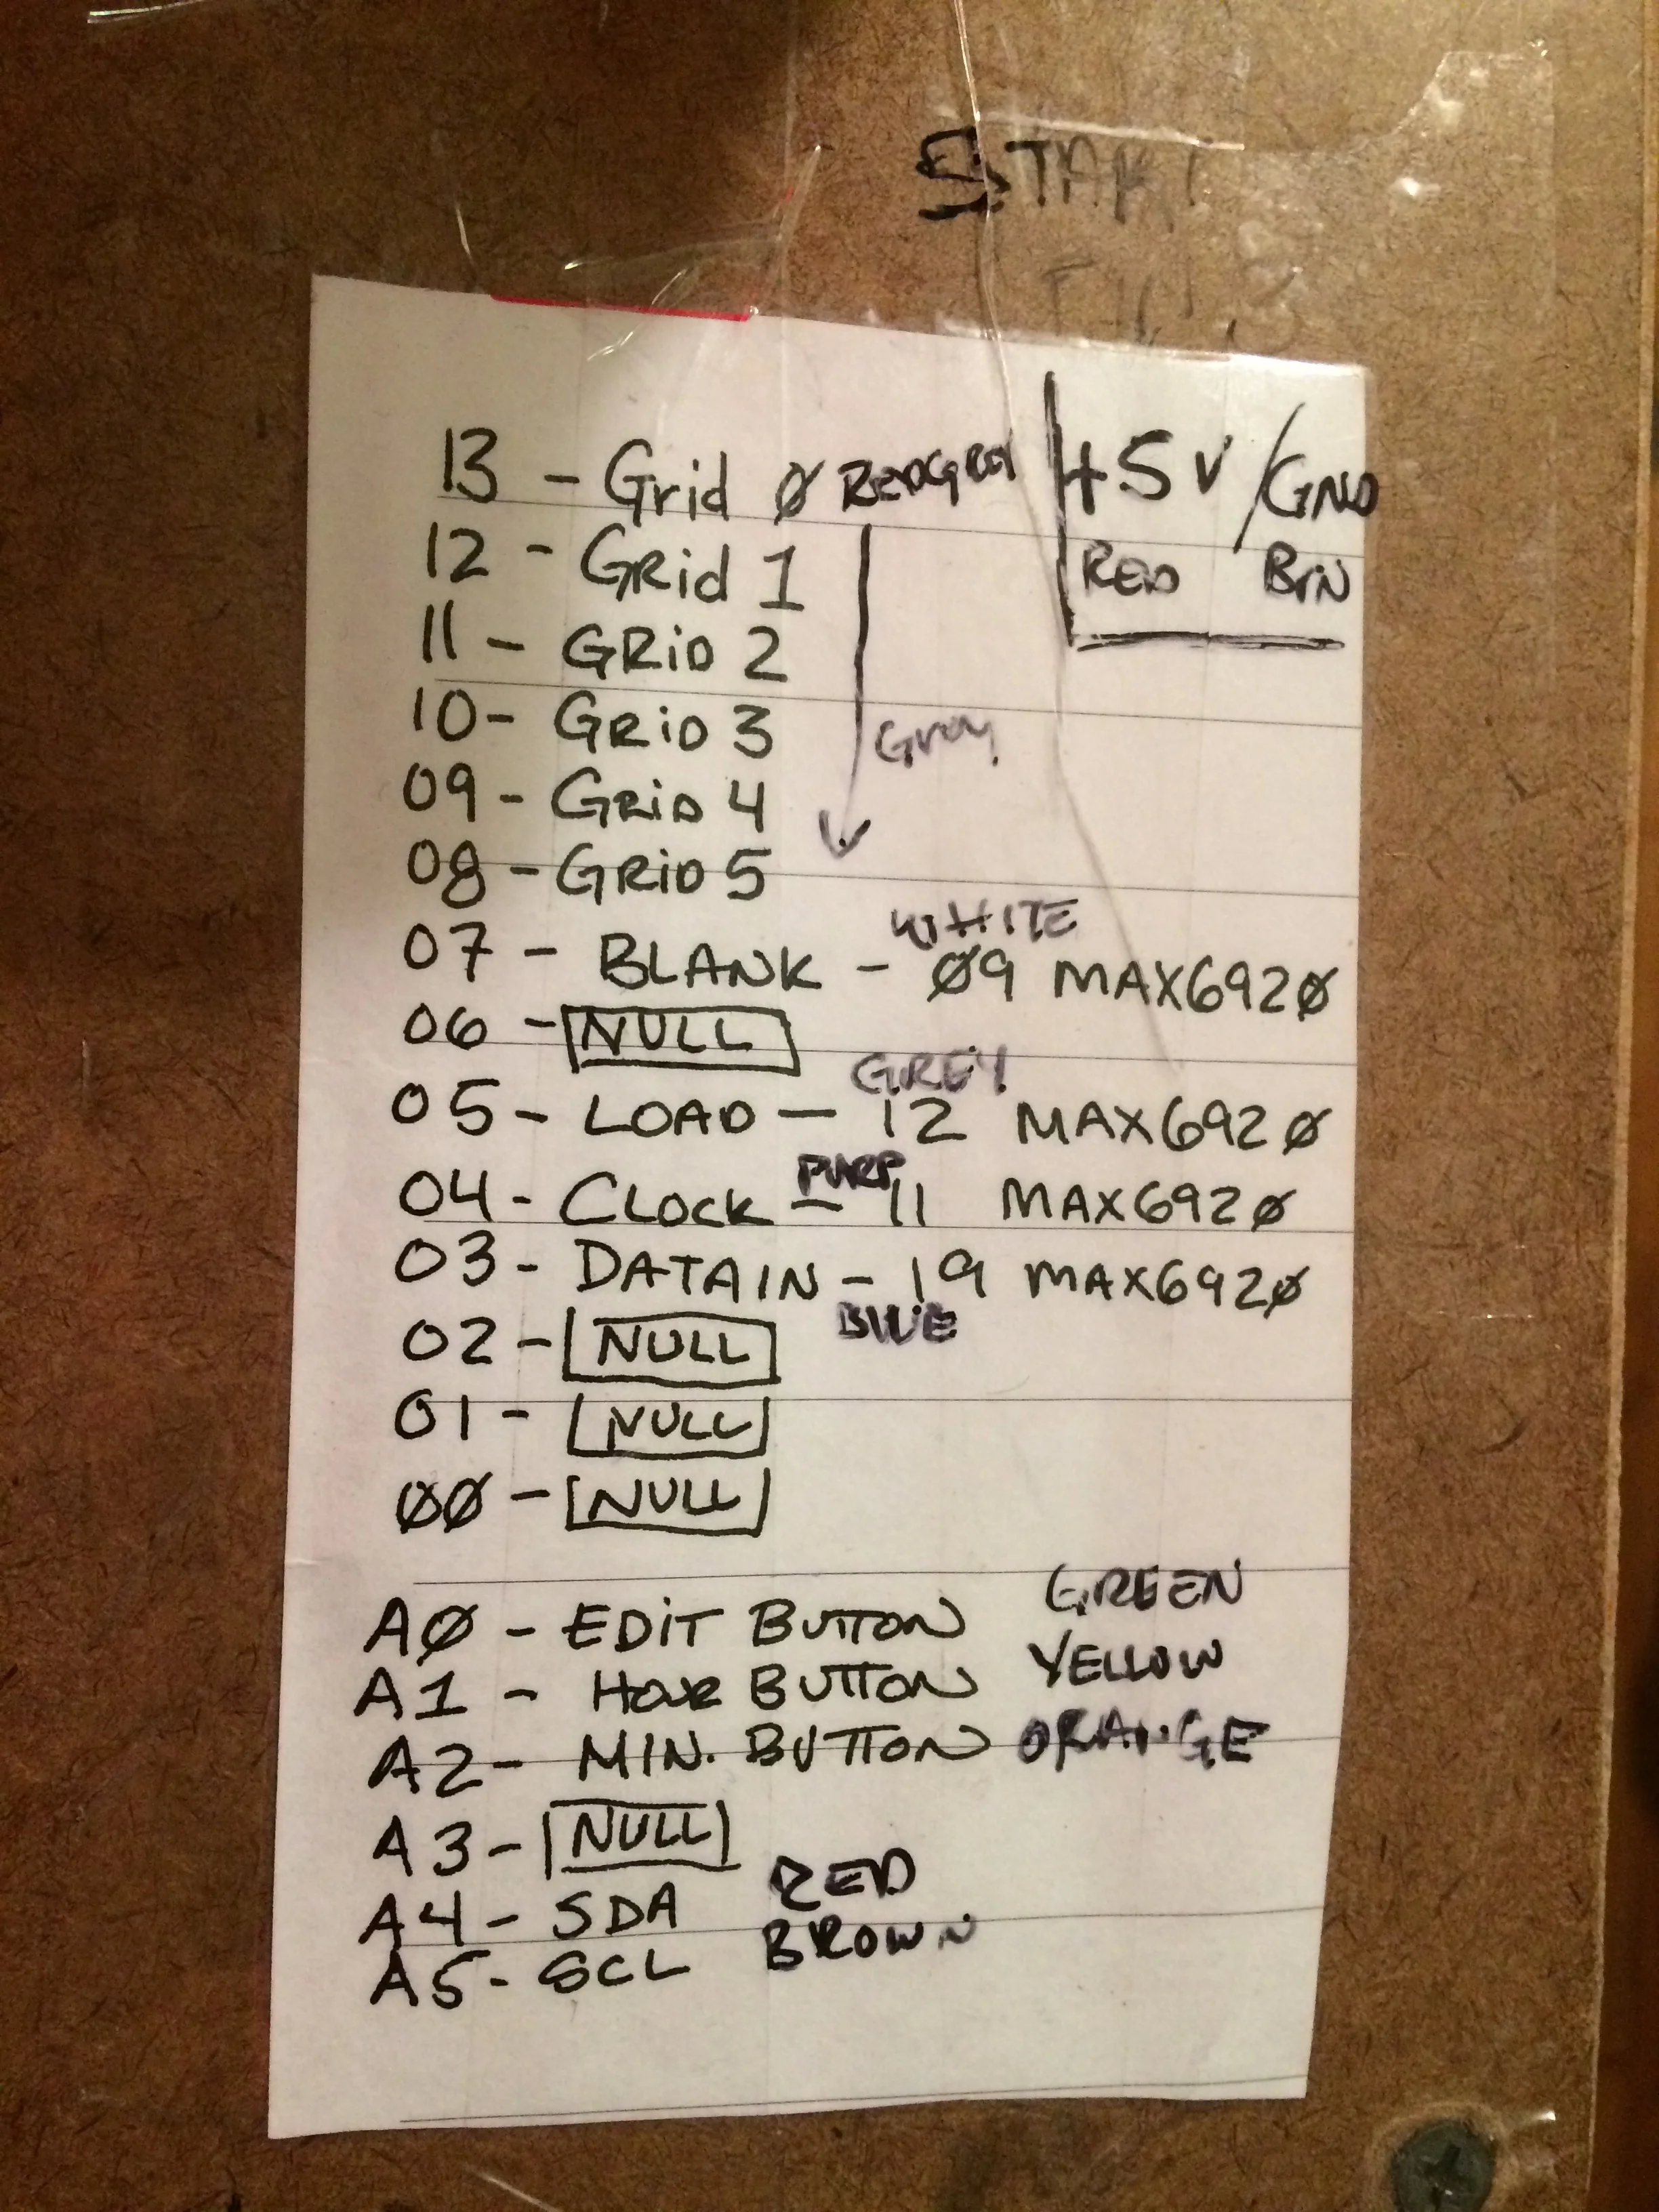 START
13 - Grid Ø REDGREY +5V / GND
12 - GRid 1 RED BRN
11 - GRiD 2
10 - GRiD 3 Grey
09 - GRiD 4
08 - GRiD 5
WHITE
07 - BLANK - Ø9 MAX692Ø
06 - NULL
GREY
05 - LOAD - 12 MAX692Ø
PURP
04 - CLOCK - 11 MAX692Ø
03 - DATAIN - 19 MAX692Ø
BLUE
02 - NULL
01 - NULL
ØØ - NULL
AØ - EDIT BUTTON GREEN
A1 - HOUR BUTTON YELLOW
A2 - MIN. BUTTON ORANGE
A3 - NULL
A4 - SDA RED
A5 - SCL BROWN